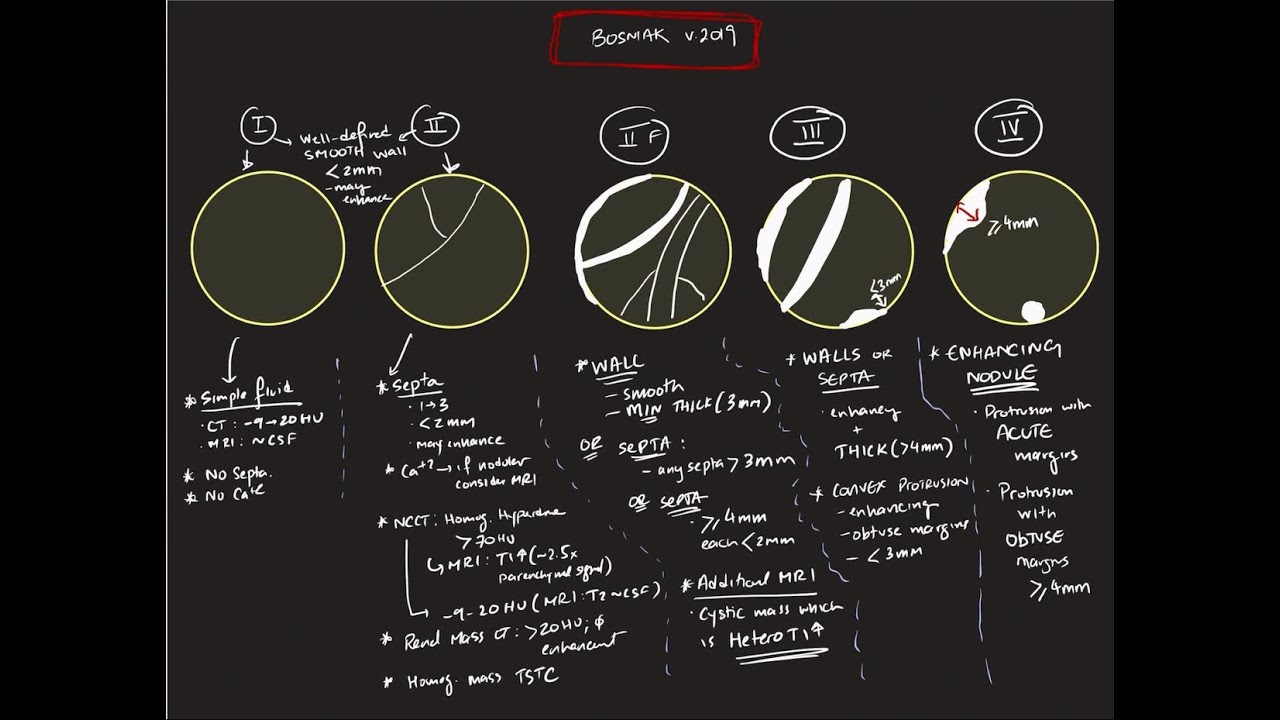 BOSNIAK v.2019
I
Well-defined
SMOOTH wall
< 2mm
- may
enhance
II
II F
III
IV
<3mm
≥4mm
* Simple fluid
· CT : -9 → 20 HU
· MRI : ~CSF
* No Septa.
* No Ca+2
* Septa
· 1→3
· <2mm
· may enhance
* Ca+2 → if nodular
consider MRI
* NCCT : Homog. Hyperdense
> 70HU
↳ MRI : T1↑ (~2.5x
parenchymal signal)
→ -9-20 HU (MRI : T2 ~CSF)
* Renal Mass CT : >20HU; ϕ
enhancement
* Homog. mass TSTC
* WALL
- smooth
- MIN THICK (3mm)
OR SEPTA :
- any septa > 3mm
OR SEPTA
· ≥4mm
each <2mm
* Additional MRI
· Cystic mass which
is Hetero T1↑
* WALLS OR
SEPTA
· enhancing
+
THICK (>4mm)
* CONVEX PROTRUSION
- enhancing
- obtuse margins
- <3mm
* ENHANCING
NODULE
· Protrusion with
ACUTE
margins
· Protrusion
with
OBTUSE
margins
≥4mm